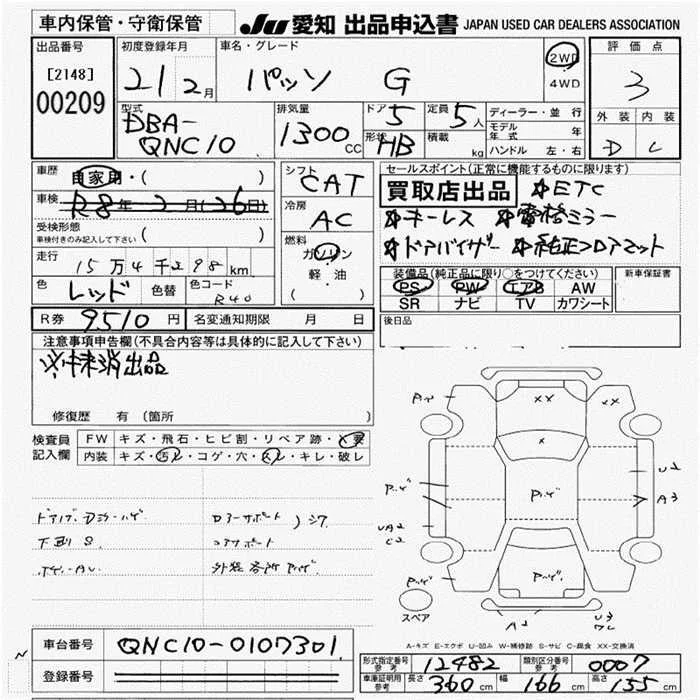 車内保管・守衛保管
JU 愛知 出品申込書 JAPAN USED CAR DEALERS ASSOCIATION
出品番号
[2148]
00209
初度登録年月
21 2月
車名・グレード
パッソ G
2WD
4WD
評価点
3
外装 内装
D C
型式
DBA-
QNC10
排気量
1300 CC
ドア 5
形状 HB
定員 5人
積載 kg
ディーラー・並行
モデル年式 年
ハンドル 左・右
車歴
自家用・( )
車検
R8年2月(26日)
受検形態
車検付きのみ記入して下さい ( )
走行
15万4千298km
色 レッド 色替 色コード R40
シフト
CAT
冷房
AC
燃料
ガソリン
軽・油
( )
セールスポイント(正常に機能するものに限ります)
買取店出品 ETC
キーレス 電格ミラー
ドアバイザー 純正フロアマット
装備品(純正品に限り○をつけてください)
PS PW エアB AW
SR ナビ TV カワシート
新車保証書
後日品
R券 9510円 名変通知期限 月 日
注意事項申告欄(不具合内容等は具体的に記入して下さい)
※抹消出品
修復歴 有(箇所
検査員
記入欄
FW キズ・飛石・ヒビ割・リペア跡・X要
内装 キズ・汚レ・コゲ・穴・スレ・キレ・破レ
下廻S
コアサポート
XX XX
X
U2
A3
UA2
C2
A2
U3
スペア
A-キズ E-エクボ U-凹み W-補修跡 S-サビ C-腐食 XX-交換済
車台番号 QNC10-0107301
登録番号
型式指定番号 参考 12482 類別区分番号 参考 0007
車庫証明用 参考 長さ 360cm 幅 166cm 高さ 155cm